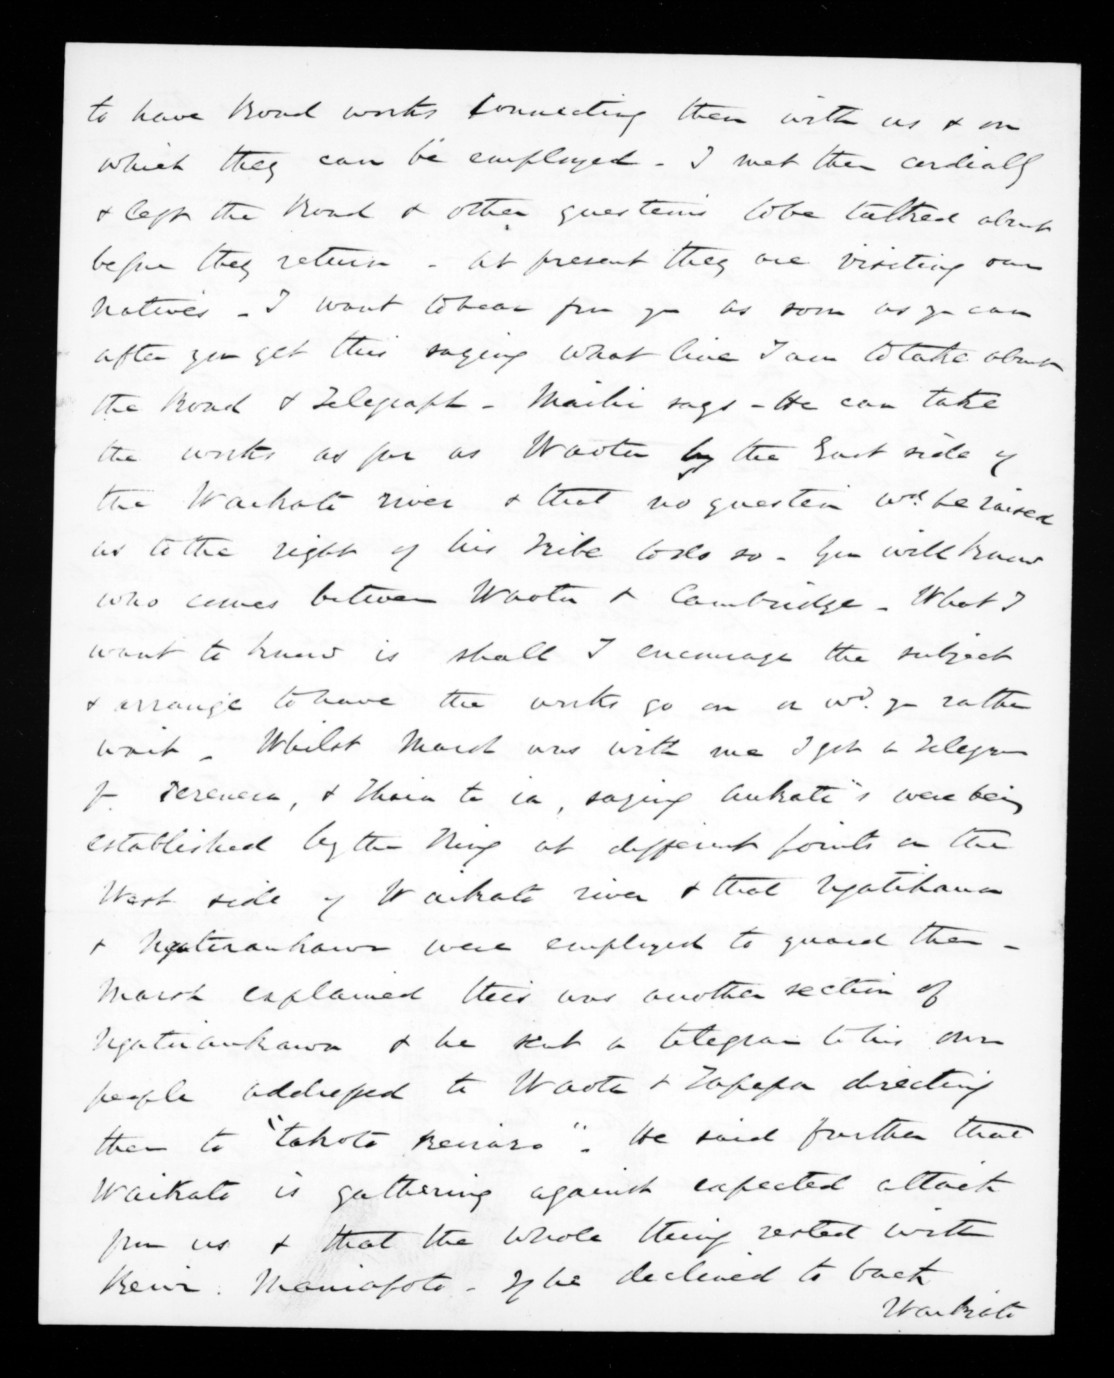 to have Road works connecting them with us & on
which they can be employed - I met them cordially
& left the Road & other questions to be talked about
before they return - at present they are visiting our
Natives - I want to hear from you as soon as you can
after you get this saying what line I am to take about
the Road & Telegraph - Maihi says - He can take
the works as far as Waotu by the East side of
the Waikato river & that no question wd. be raised
as to the right of his Tribe to do so - You will know
who comes between Waotu & Cambridge - What I
want to know is shall I encourage the subject
& arrange to have the works go on or wd. you rather
wait - Whilst Marsh was with me I got a Telegram
f. & saying aukati"s were being
established by the King at different points on the
West side of Waikato river & that Ngatihaua
& Ngatiraukawa were employed to guard them -
Marsh explained this was another section of
Ngatiraukawa & he sent a telegram to his own
people addressed to Waotu & Tapapa directing
them to "takoto " - He said further that
Waikato is gathering against expected attack
from us & that the whole thing rested with
Rewi Maniapoto - If he declined to back
Waikato